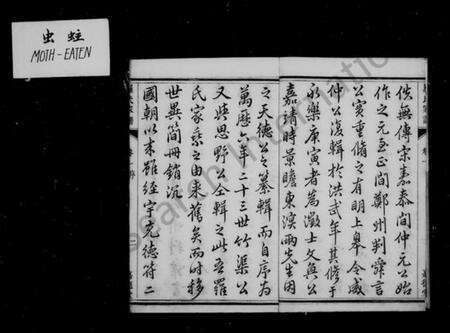 虫蛀
MOTH-EATEN
佚無傳宗嘉泰間仲元公始
作之元至正間鄭州判
公實重脩之有明上皋令威
仲公復輯於洪武年其脩于
永樂庚寅者為澂士文與公
嘉靖時景瞻東濱兩先生因
之天德公之纂輯而自序為
萬曆六年二十三世竹渠公
又與思野公合輯之此吾羅
氏家乘之由來舊矣而時移
世異簡冊銷沉
國朝以來羅經宇克德符二